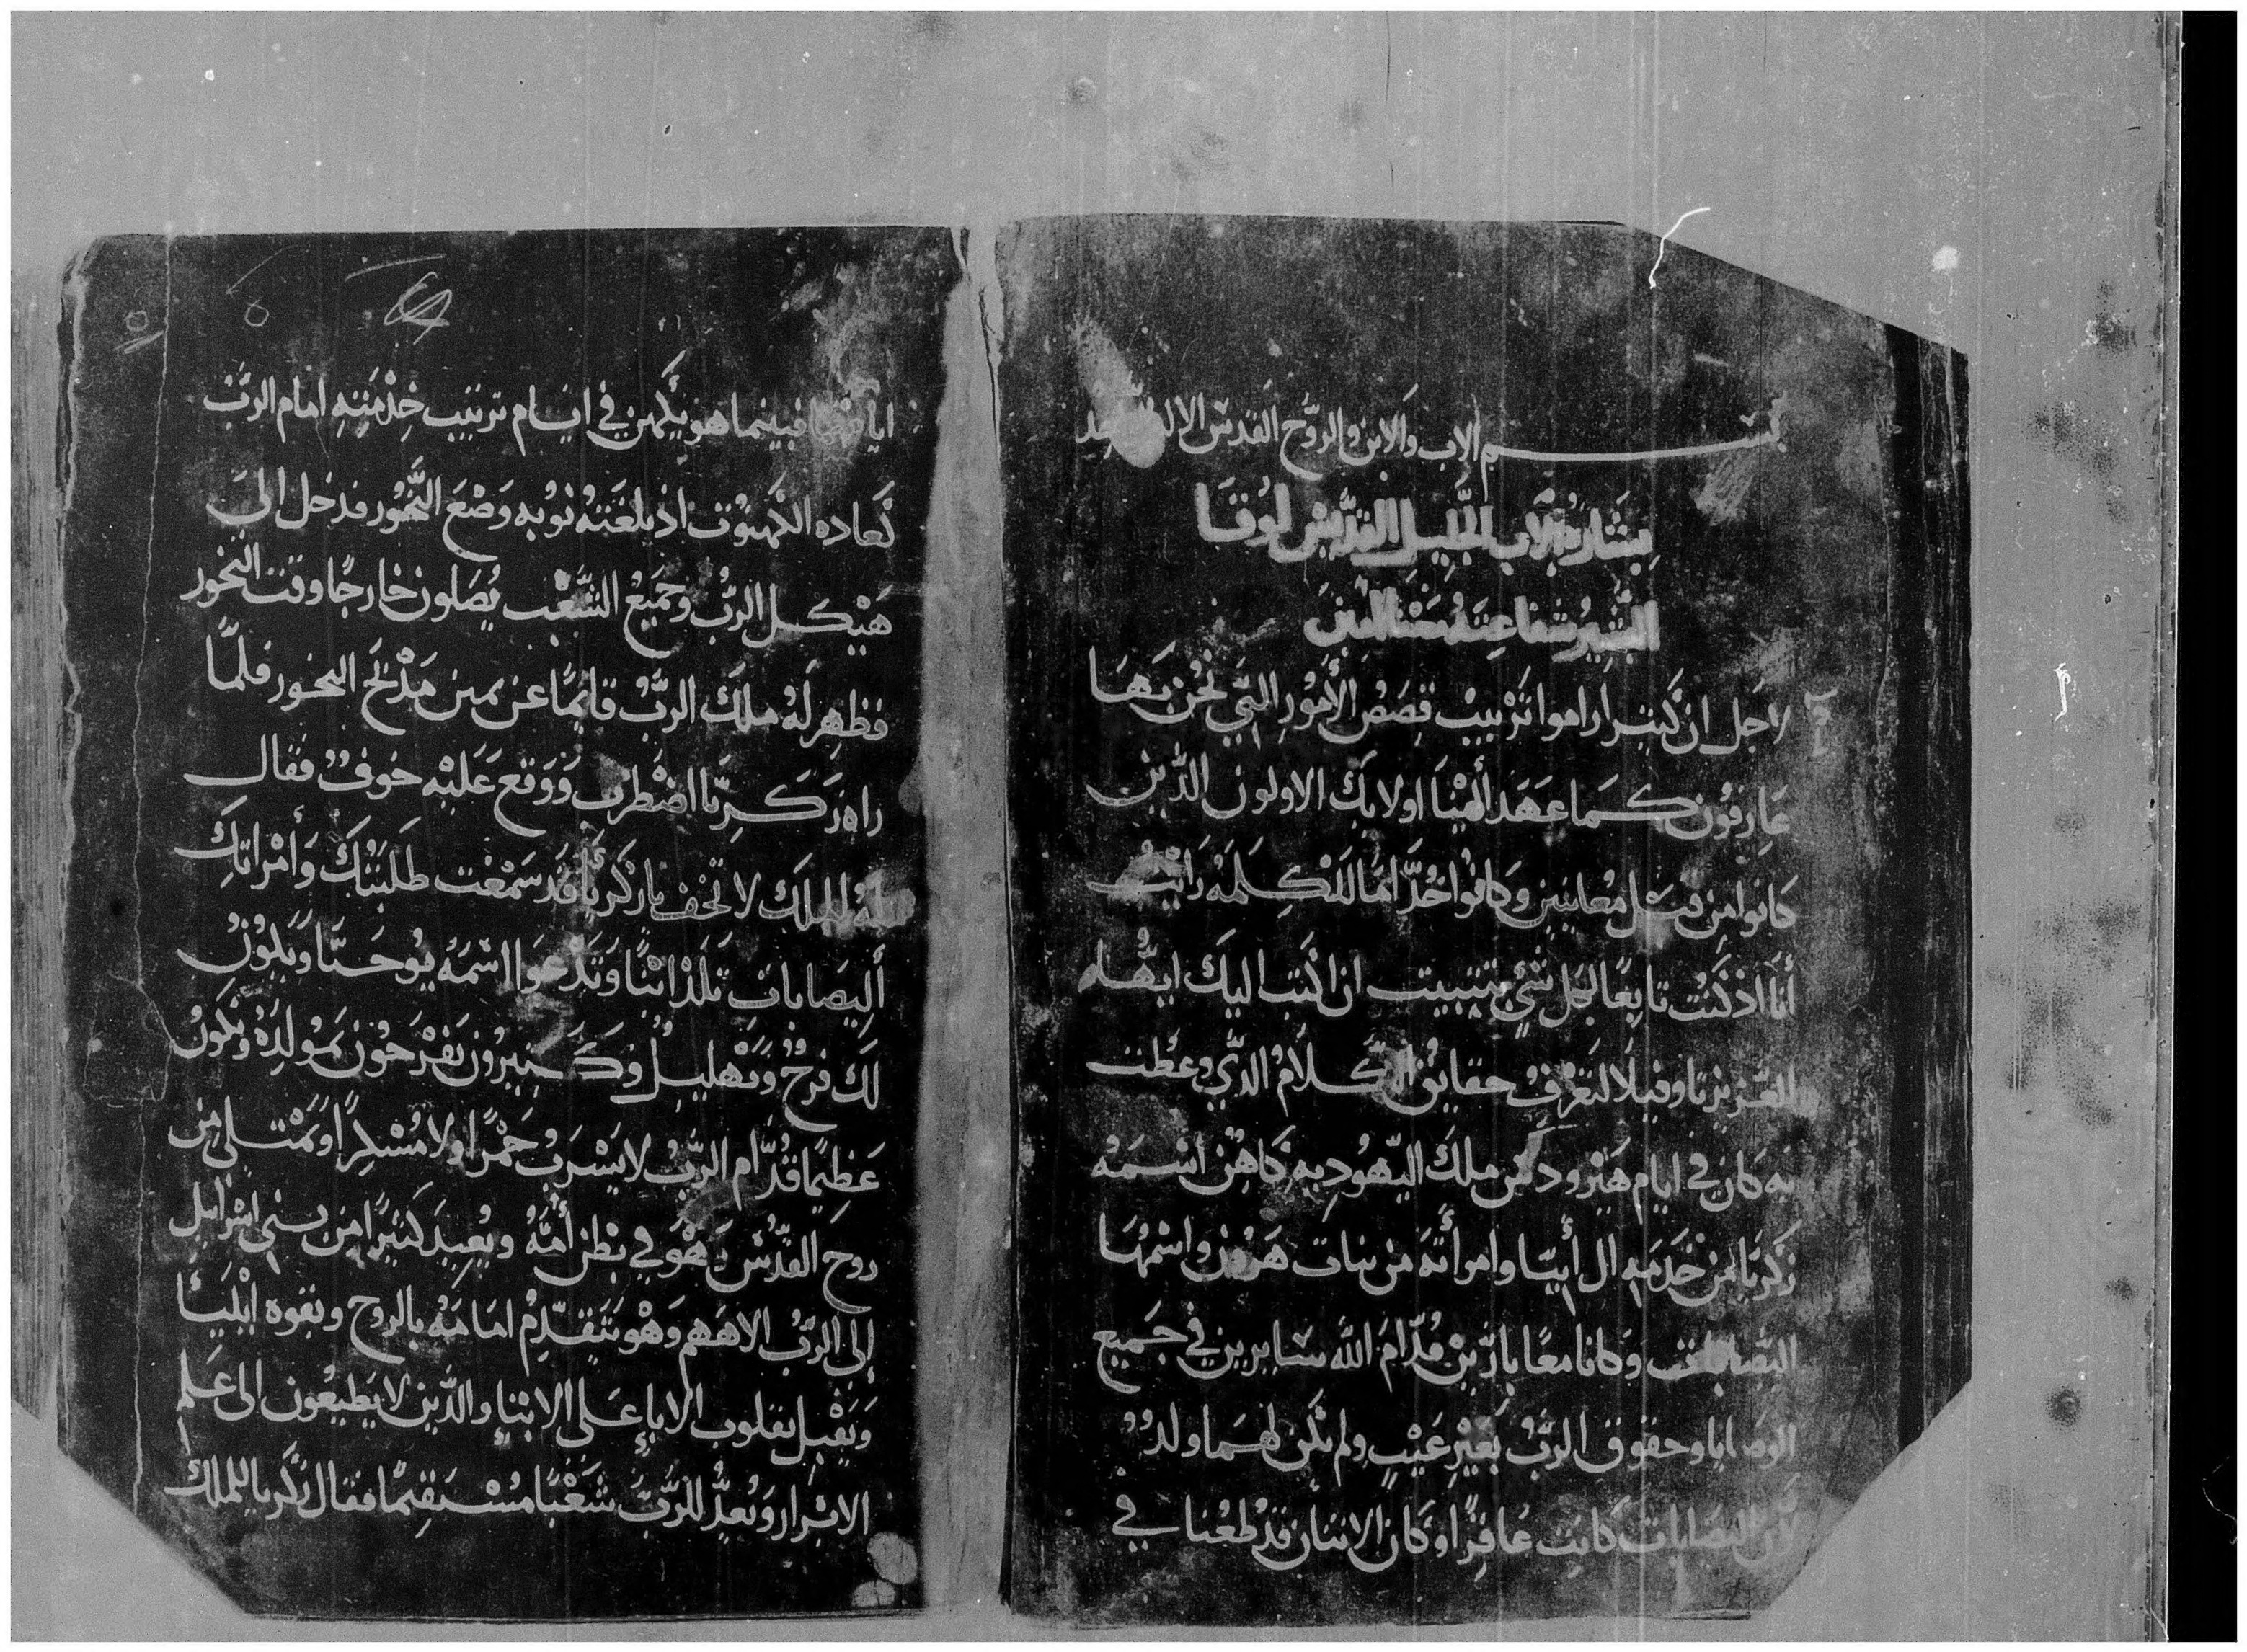 بســـــم الاب والابن والروح القدس الاله
بشارة الاب الجليل القديس لوقا
البشير شفاعته معنا امين
لاجل ان كثير اراموا ترتيب قصص الأمور التي نحن بها
عارفون كما عهد ألينا اولايك الاولون الذين
كانوا من قبل معاينين وكانوا خدّاما للكلمه رايت
أنا اذ كنت تابعًا لكل شي بتثبيت ان اكتب اليك ايها
العزيز تاوفيلا لتعرف حقايق الكلام الذي وعظت
به كان في ايام هيرودس ملك اليهوديه كاهن اسمه
زكريا من خدمه ال أبيا وامرأته من بنات هرون واسمها
اليصابات وكانا معا بارين قدّام الله سايرين في جميع
الوصايا وحقوق الرب بغير عيب ولم يكن لهما ولد
لان اليصابات كانت عاقرًا وكان الاثنان قد طعنا في
ايامهما فبينما هو يكهن في ايام ترتيب خدمته امام الرب
كعاده الكهنوت اذ بلغته نوبه وضع البخور فدخل الى
هيكل الرب وجميع الشعب يصلون خارجًا وقت البخور
فظهر له ملك الرب قايمًا عن يمين مذبح البخور فلمّا
راه زكريّا اضطرب ووقع عليه خوف فقال
له الملك لا تخف يا زكريا قد سمعت طلبتك وأمراتك
أليصابات تلد ابنًا وتدعوا اسمه يوحنا ويكون
لك فرح وتهليل وكثيرون يفرحون بمولده ويكون
عظيمًا قدّام الرب لا يشرب خمرًا ولا مسكرًا ويمتلى من
روح القدس وهو في بطن أمه ويعيد كثيرًا من بني اسرايل
إلى الرب الاههم وهو يتقدّم امامه بالروح وبقوه ايليا
ويقبل بقلوب الابا على الابنا والذين لا يطيعون الى علم
الابرار ويعدّ للرب شعبًا مستقيمًا فقال زكريا للملك